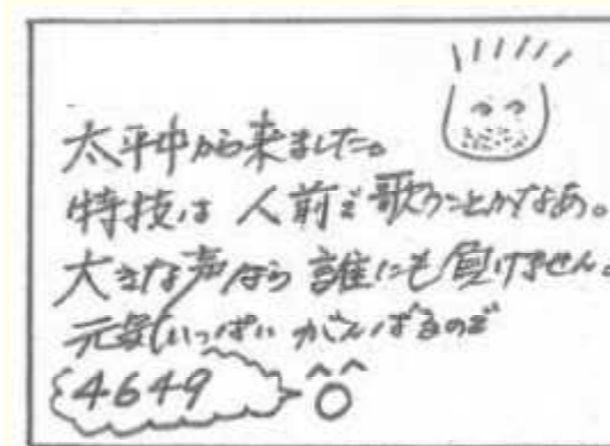 太平中から来ました。
特技は 人前で歌うことかなあ。
大きな声なら 誰にも負けません。
元気いっぱい がんばるので
4649